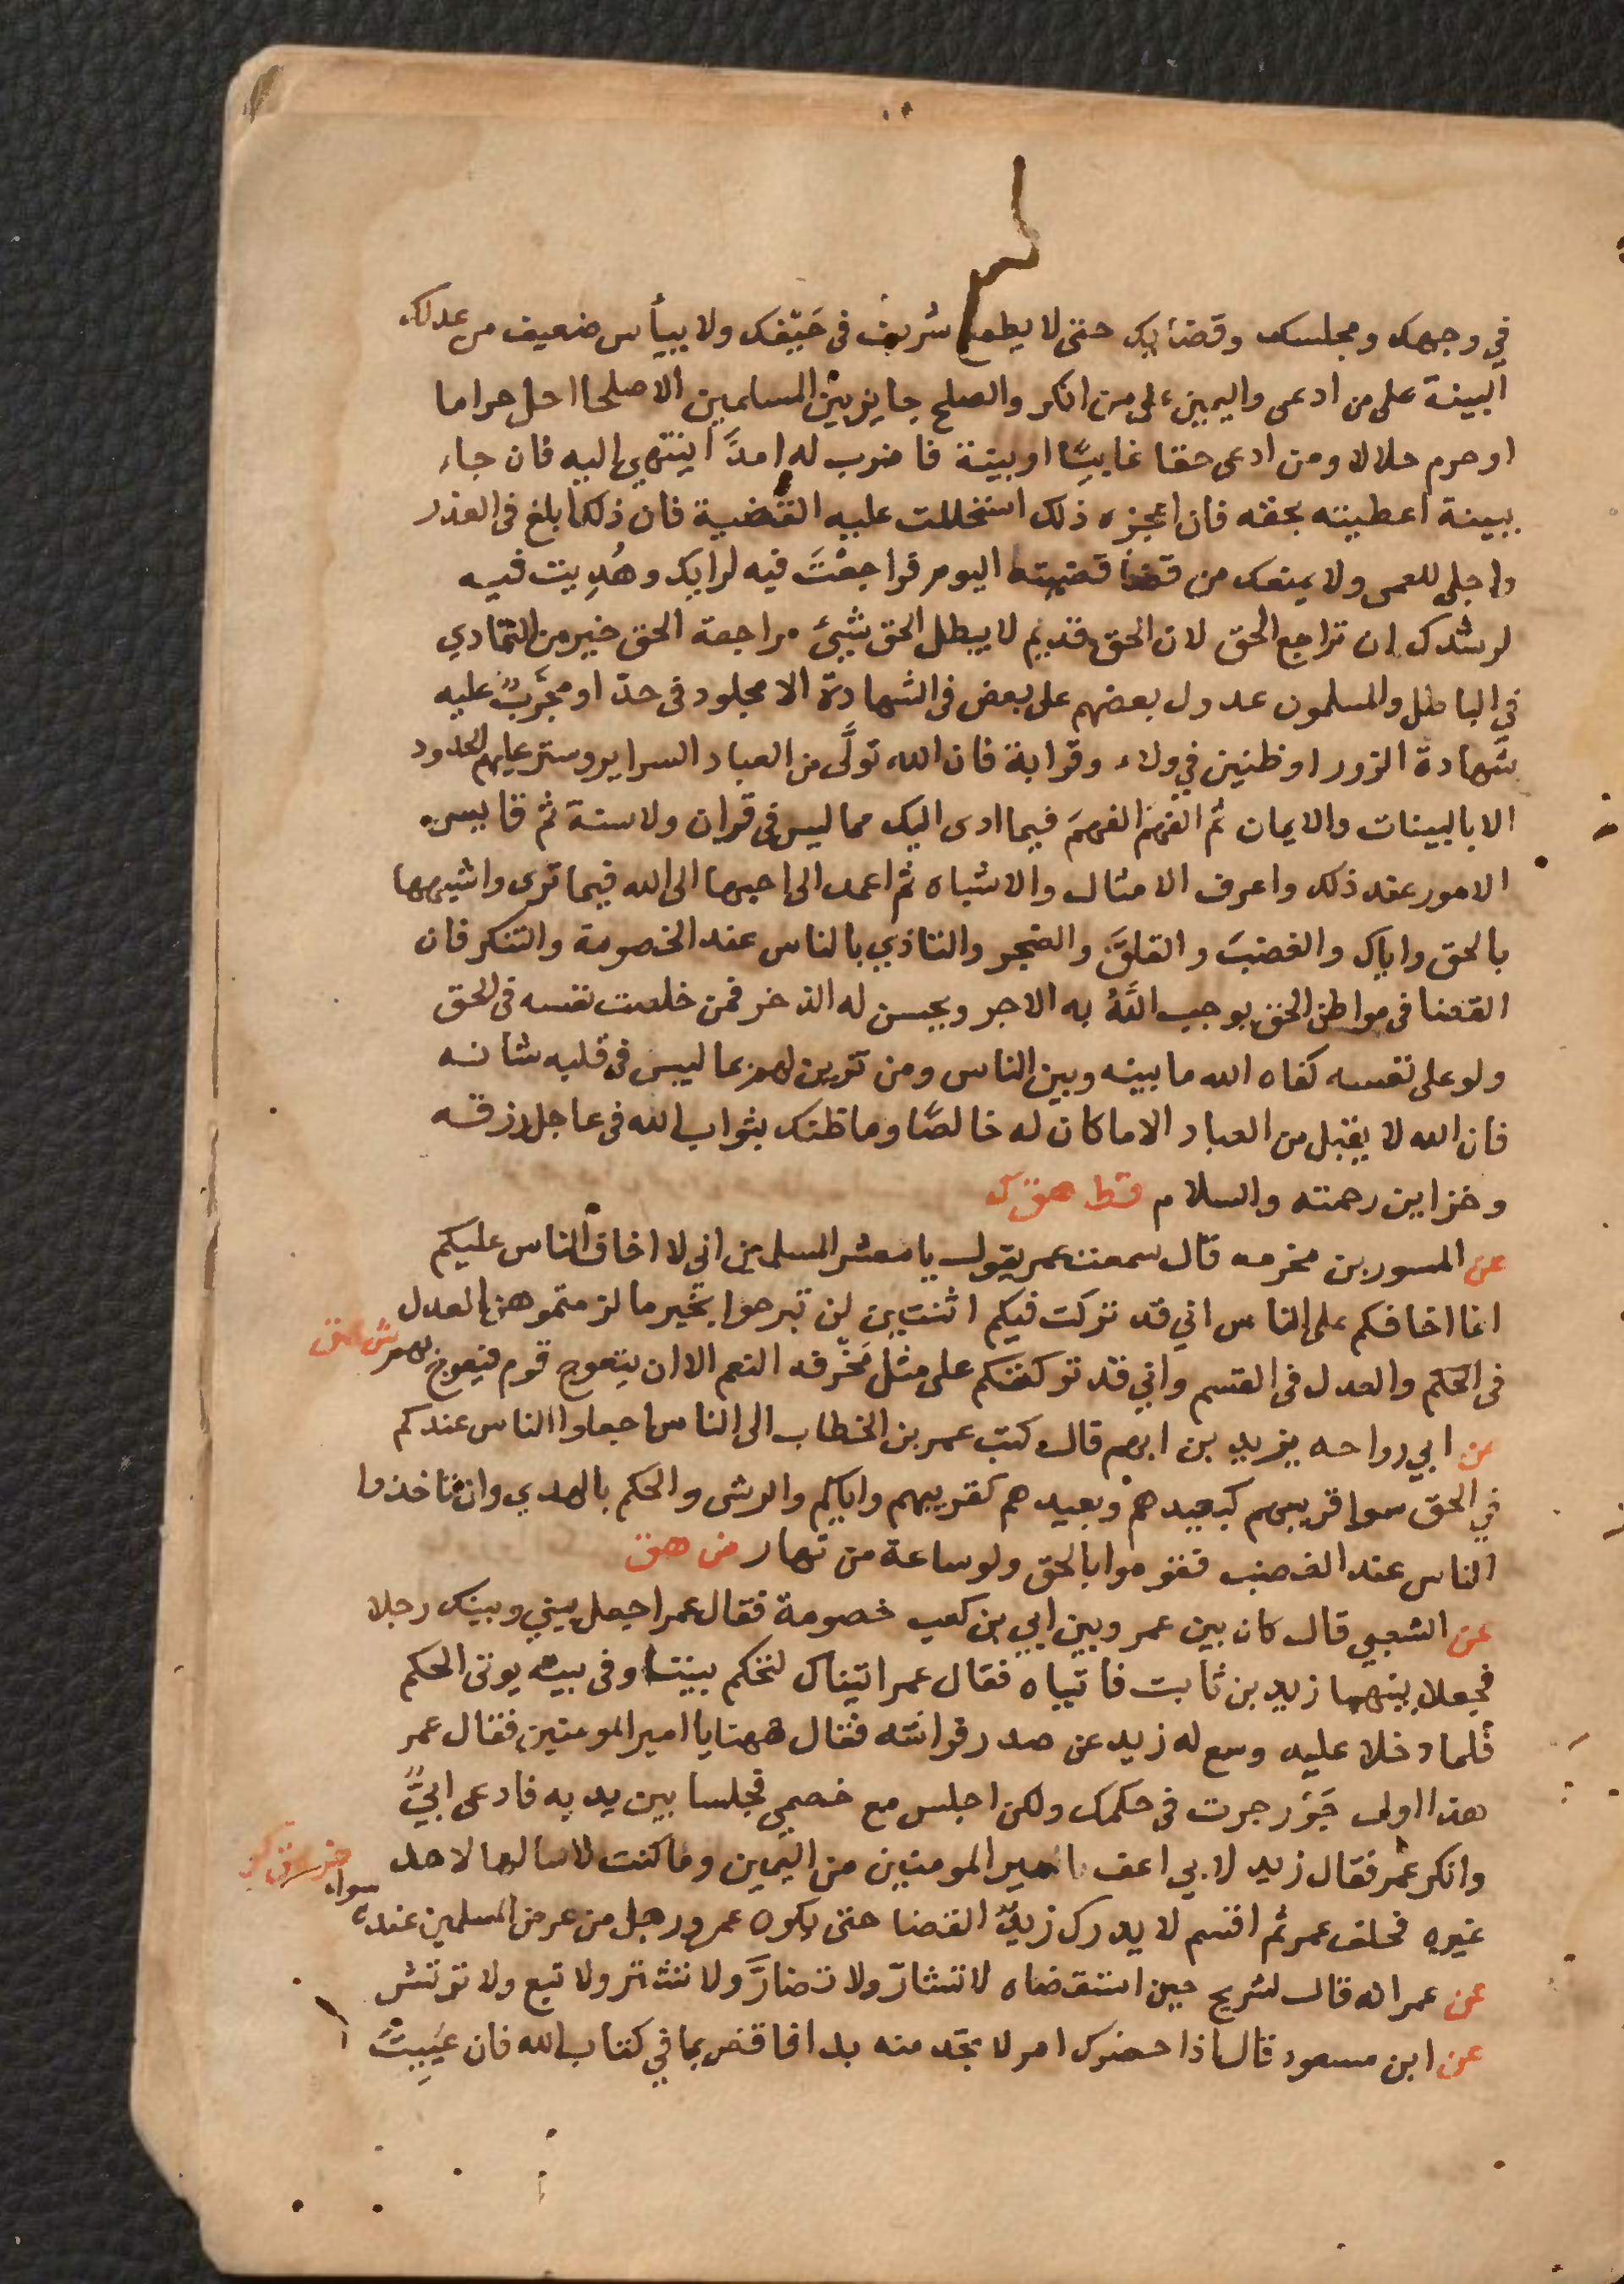 في وجهك ومجلسك وقضايك حتى لا يطمع شريف فى حَيْفك ولا ييأس ضعيف من عدلك
البينة على من ادعى واليمين على من انكر والصلح جايز بين المسلمين الا صلحا احل حراما
او حرم حلالا ومن ادعى حقا غايبًا او بينة فاضرب له امدًا ينتهي اليه فان جاء
ببينة اعطيته بحقه فان اعجزه ذلك استحللت عليه القضية فان ذلك ابلغ فى العذر
واجلى للعمى ولا يمنعك من قضا قضيته اليوم فراجعْتَ فيه لرايك وهُدِيت فيه
لرشدك ان تراجع الحق لان الحق قديم لا يبطل الحق شيئ مراجعة الحق خير من التمادي
في الباطل والمسلمون عدول بعضهم على بعض فى الشهادة الا مجلود فى حدّ او مجرَّبٌ عليه
شهادة الزور او ظنين في ولاء وقرابة فان الله تولَّى من العباد السراير وستر عليهم الحدود
الا بالبينات والايمان ثم الفهمَ الفهمَ فيما ادى اليك مما ليس فى قران ولا سنة ثم قايس
الامور عند ذلك واعرف الامثال والاشباه ثم اعمد الى احبها الى الله فيما ترى واشبهها
بالحق واياك والغضبَ والقلقَ والضجر والتاذي بالناس عند الخصومة والتنكر فان
القضا فى مواطن الحق يوجب اللهُ به الاجر ويحسن له الذخر فمن خلصت نفسه فى الحق
ولو على نفسه كفاه الله ما بينه وبين الناس ومن تزين لهم بما ليس فى قلبه شانه
فان الله لا يقبل من العباد الا ما كان له خالصًا وما ظنك بثواب الله فى عاجل رزقه
وخزاين رحمته والسلام قط هق كر
عن المسور بن مخرمه قال سمعت عمر يقول يا معشر المسلمين اني لا اخاف الناس عليكم
انما اخافكم على الناس اني قد تركت فيكم اثنتين لن تبرحوا بخير ما لزمتموهن العدل
فى الحكم والعدل فى القسم واني قد تركتكم على مثل مَخْرفه النعم الا ان يتعوج قوم فيعوج بهم ش هق
عن ابي رواحه يزيد بن ابرهم قال كتب عمر بن الخطاب الى الناس اجعلوا الناس عندكم
في الحق سوا قريبهم كبعيدهم وبعيدهم كقريبهم واياكم والرشى والحكم بالهوي وان تاخذوا
الناس عند الغضب فقوموا بالحق ولو ساعة من نهار ص هق
عن الشعبي قال كان بين عمر وبين ابي بن كعب خصومة فقال عمر اجعل بيني وبينك رجلا
فجعلا بينهما زيد بن ثابت فاتياه فقال عمر اتيناك لتحكم بيننا وفى بيته يوتى الحكم
فلما دخلا عليه وسع له زيد عن صدر فراشه فقال ههنا يا امير المومنين فقال عمر
هذا اول جَوْر جرت فى حكمك ولكن اجلس مع خصمي فجلسا بين يديه فادعى ابيٌّ
وانكر عمر فقال زيد لابي اعف امير المومنين من اليمين وما كنت لاسالها لاحد
غيره فحلف عمر ثم اقسم لا يدرك زيدٌ القضا حتى يكون عمر ورجل من عرض المسلمين عنده سواء
عن عمر انه قال لشريح حين استقضاه لا تشارّ ولا تضارَّ ولا تشتر ولا تبع ولا ترتش
عن ابن مسعود قال اذا حضرك امر لا تجد منه بدا فاقض بما في كتاب الله فان عَيِيتَ